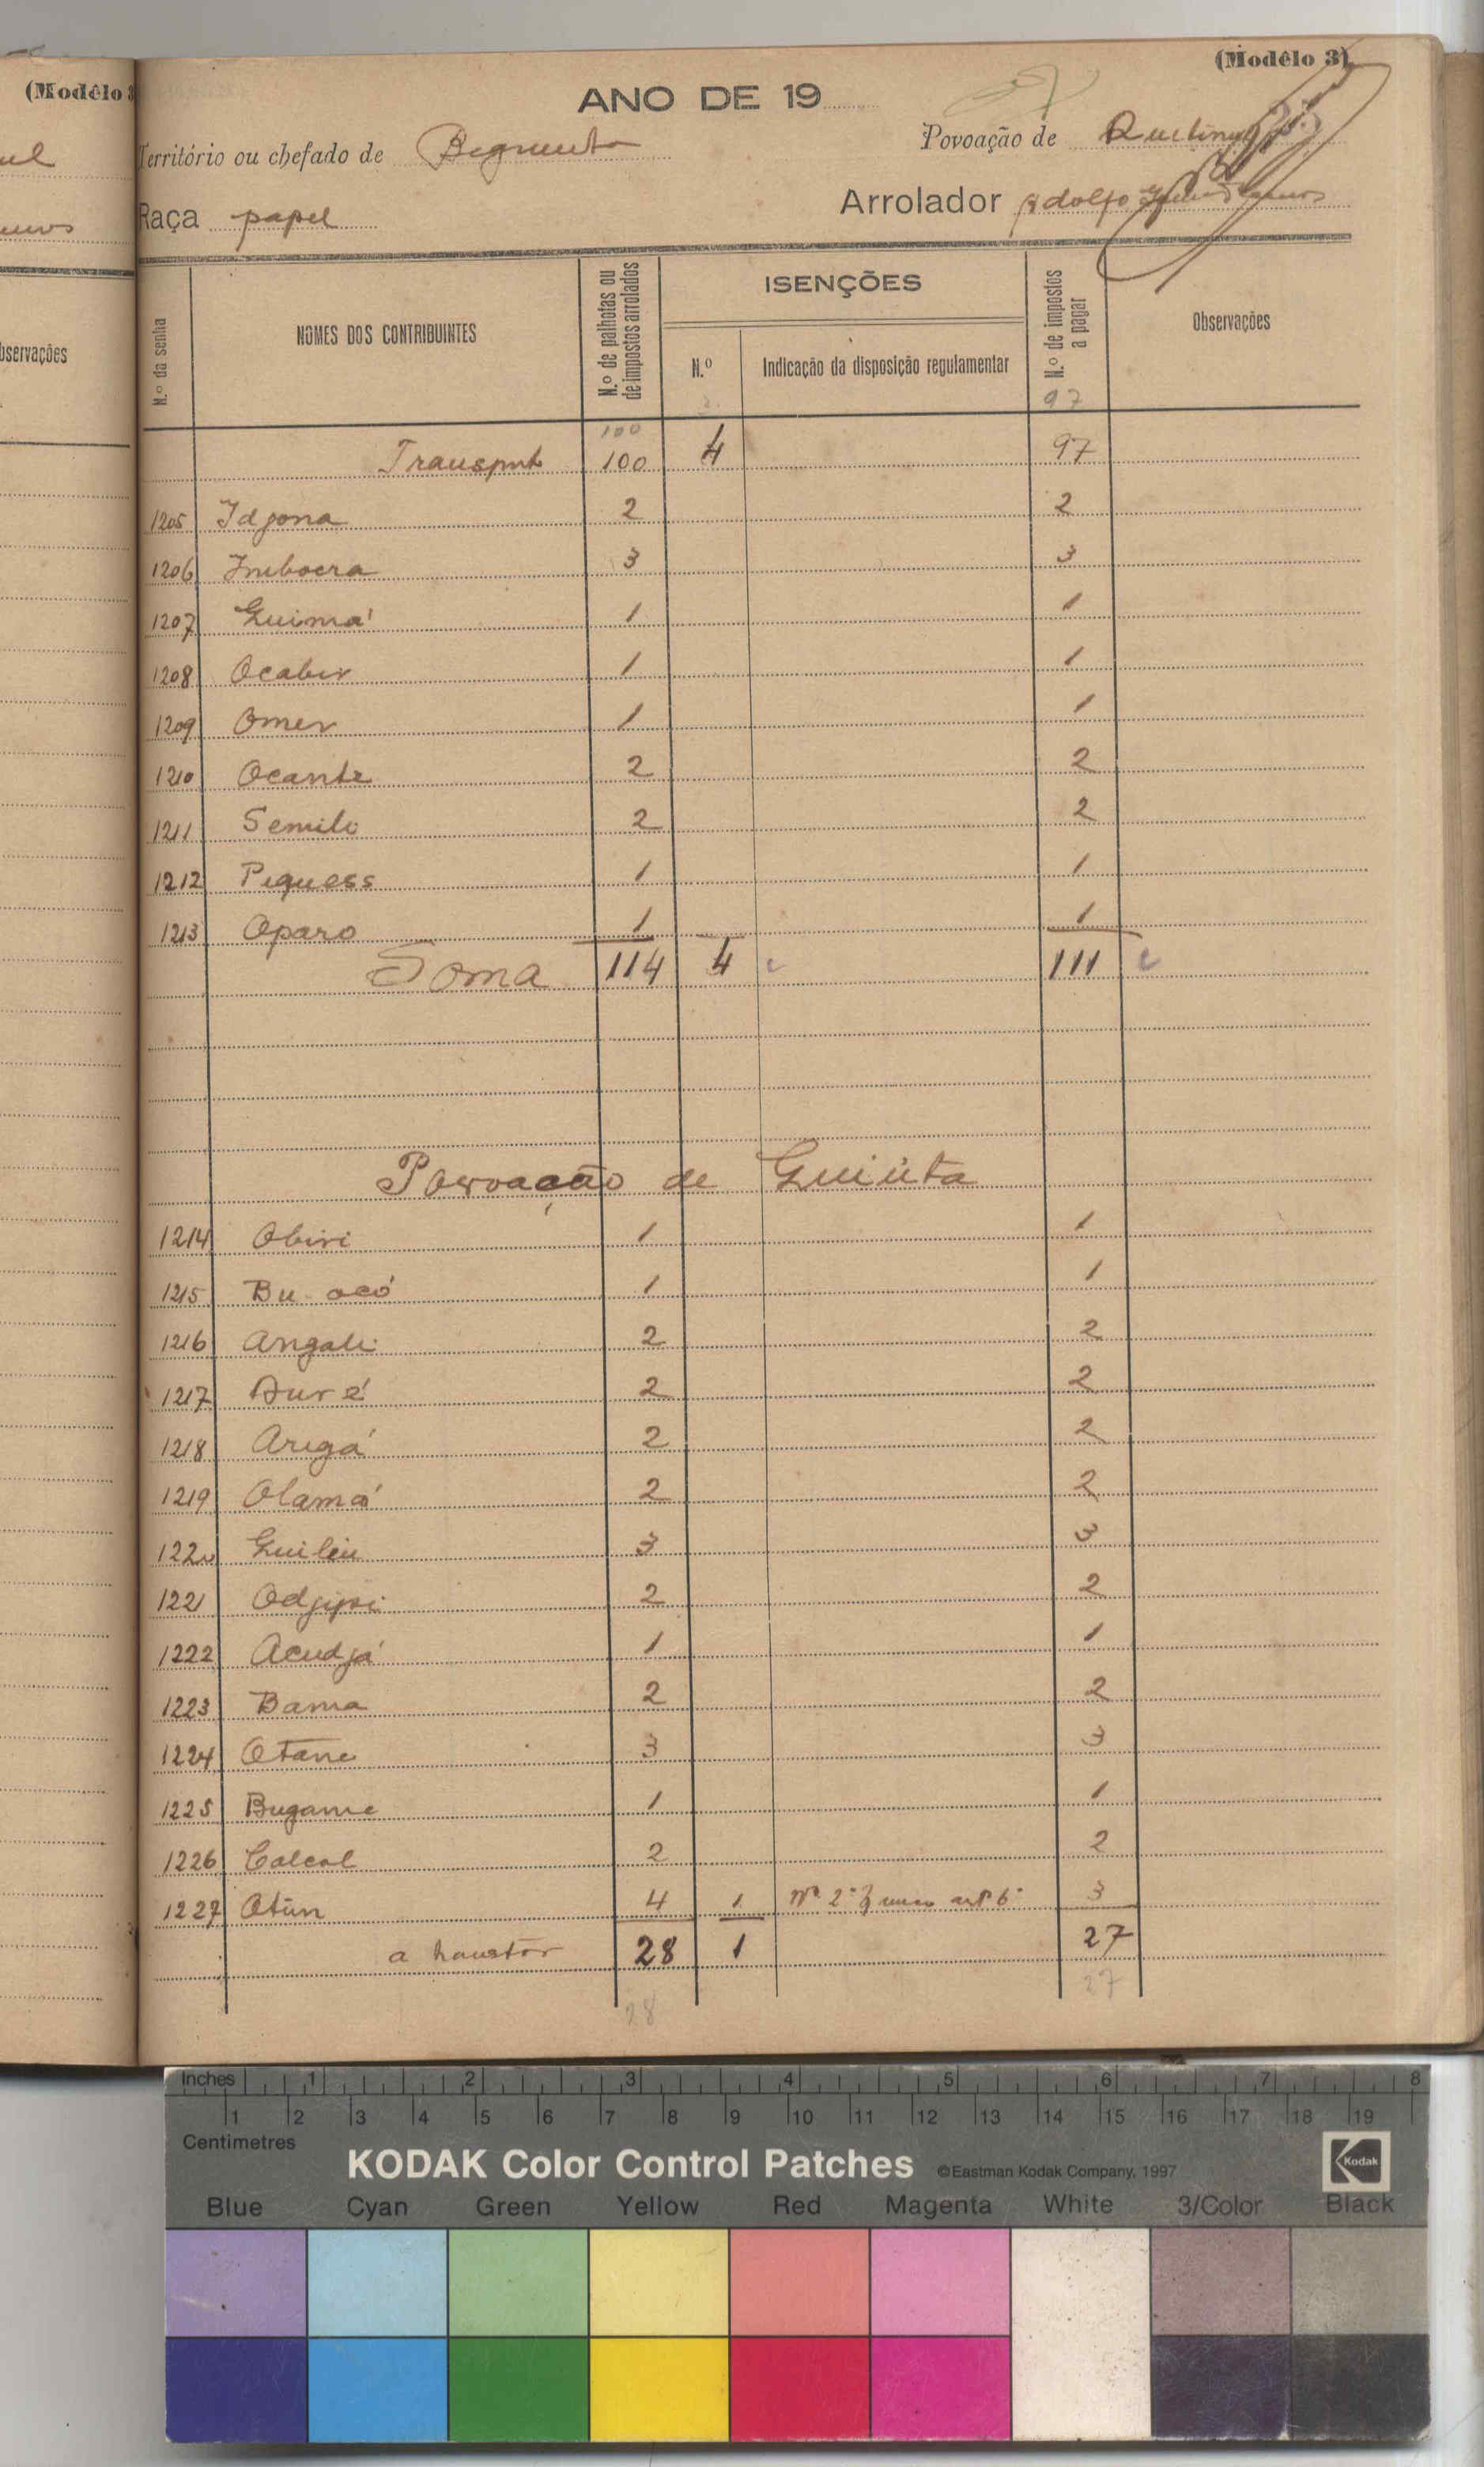 (Modêlo 3)
ANO DE 19
Território ou chefado de
Povoação de
Raça papel
Arrolador Adolfo
N.º da senha
NOMES DOS CONTRIBUINTES
N.º de palhotas ou de impostos arrolados
ISENÇÕES
N.º
Indicação da disposição regulamentar
N.º de impostos a pagar
Observações
97
100
Transporte 100 4 97
1205 Idjona 2 2
1206 Imboera 3 3
1207 Guimá 1 1
1208 Ocabir 1 1
1209 Omer 1 1
1210 Ocante 2 2
1211 Semilo 2 2
1212 Pequess 1 1
1213 Oparo 1 1
Soma 114 4 111
Povoação de Guiúta
1214 Obiri 1 1
1215 Bu-ocó 1 1
1216 Angali 2 2
1217 Duré 2 2
1218 Aregá 2 2
1219 Olamá 2 2
1220 Guileu 3 3
1221 2 2
1222 Acudjá 1 1
1223 Bama 2 2
1224 Otane 3 3
1225 Bugame 1 1
1226 Calcal 2 2
1227 Otún 4 1 Nº 2º § unico artº 6º 3
a 28 1 27
28 27
(Modêlo 3
bservações
Inches 1 2 3 4 5 6 7 8
1 2 3 4 5 6 7 8 9 10 11 12 13 14 15 16 17 18 19
Centimetres
KODAK Color Control Patches ©Eastman Kodak Company, 1997 Kodak
Blue Cyan Green Yellow Red Magenta White 3/Color Black